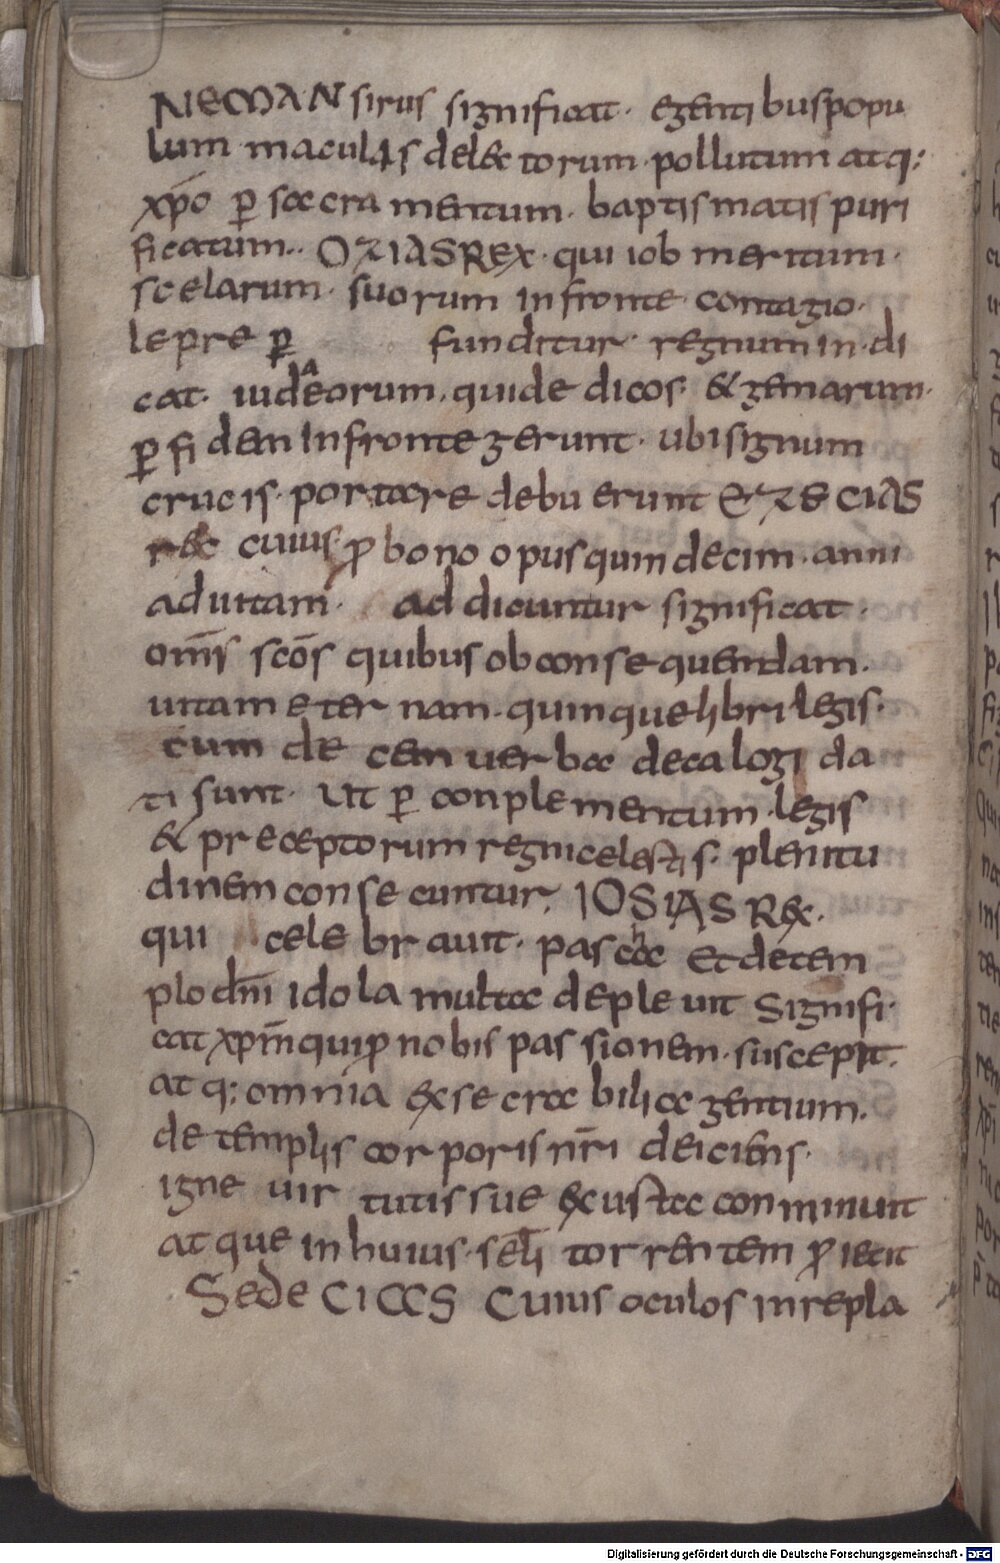 NEMAN sirus significat· egentibus popu
lum· maculis delectorum· pollutum atq:
xp̄o ꝑ sacramentum· baptismatis puri
ficatum·· OZIAS REX· qui iob meritum·
scelarum· suorum in fronte· contagio·
lepre ꝑ funditur· regnum in·di
cat· iudeaorum· quide dicos· & genarum·
ꝑ fidem in fronte gerunt· ubi signum
crucis· portare debuerunt EZECIAS
rex cuius ꝓ bono opus quindecim· anni
ad uitam· ad dicuntur significat·
om̄s sc̄os quibus ob consequendam·
uitam eternam· quinque libri legis·
cum decem uerba decalogi da
ti sunt· ut ꝑ conplementum·legis
& preceptorum regni celestis· plenitu
dinem consecuntur· IOSIAS REX·
qui celebrauit· pascha Et de tem
plo dn̄i idola multa depleuit signifi·
cat xp̄m qui ꝓ nobis passionem· suscepit·
atq: omnia exsecrabilia gentium·
de templis corporis nr̄i deiciens·
igne uirtutis sue exusta conminuit
atque in huius·sēli torrentem ꝓiecit
SedeCIAS Cuius oculos in repla
Digitalisierung gefördert durch die Deutsche Forschungsgemeinschaft - DFG